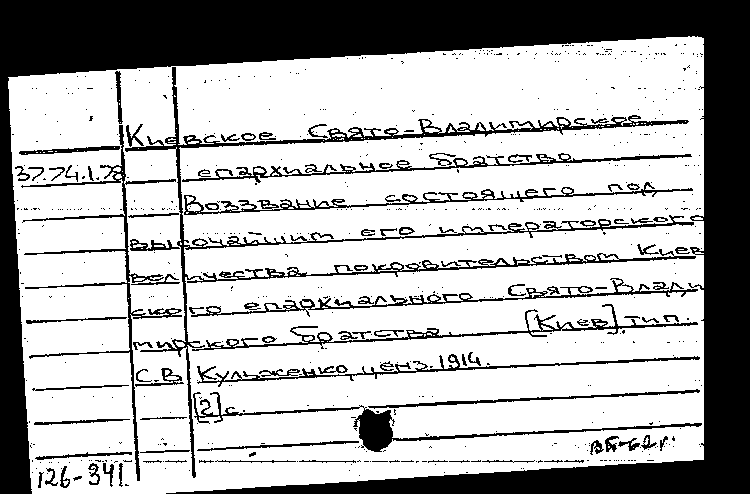 Киевское Свято-Владимирское
37.74.1.78 епархиальное братство.
Воззвание состоящего под
высочайшим его императорского
величества покровительством Киев
ского епархиального Свято-Влади
мирского братства. [Киев], тип.
С.В. Кульженко, ценз. 1914.
[2] с.
126-341